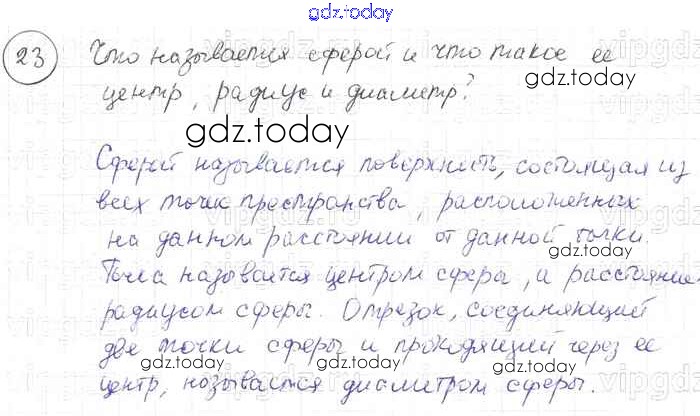 gdz.today
23 Что называется сферой и что такое ее
центр, радиус и диаметр?
gdz.today
gdz.today
Сферой называется поверхность, состоящая из
всех точек пространства, расположенных
на данном расстоянии от данной точки.
gdz.today
Точка называется центром сферы, а расстояние
радиусом сферы. Отрезок, соединяющий
две точки сферы и проходящий через ее
gdz.today
gdz.today
центр, называется диаметром сферы.